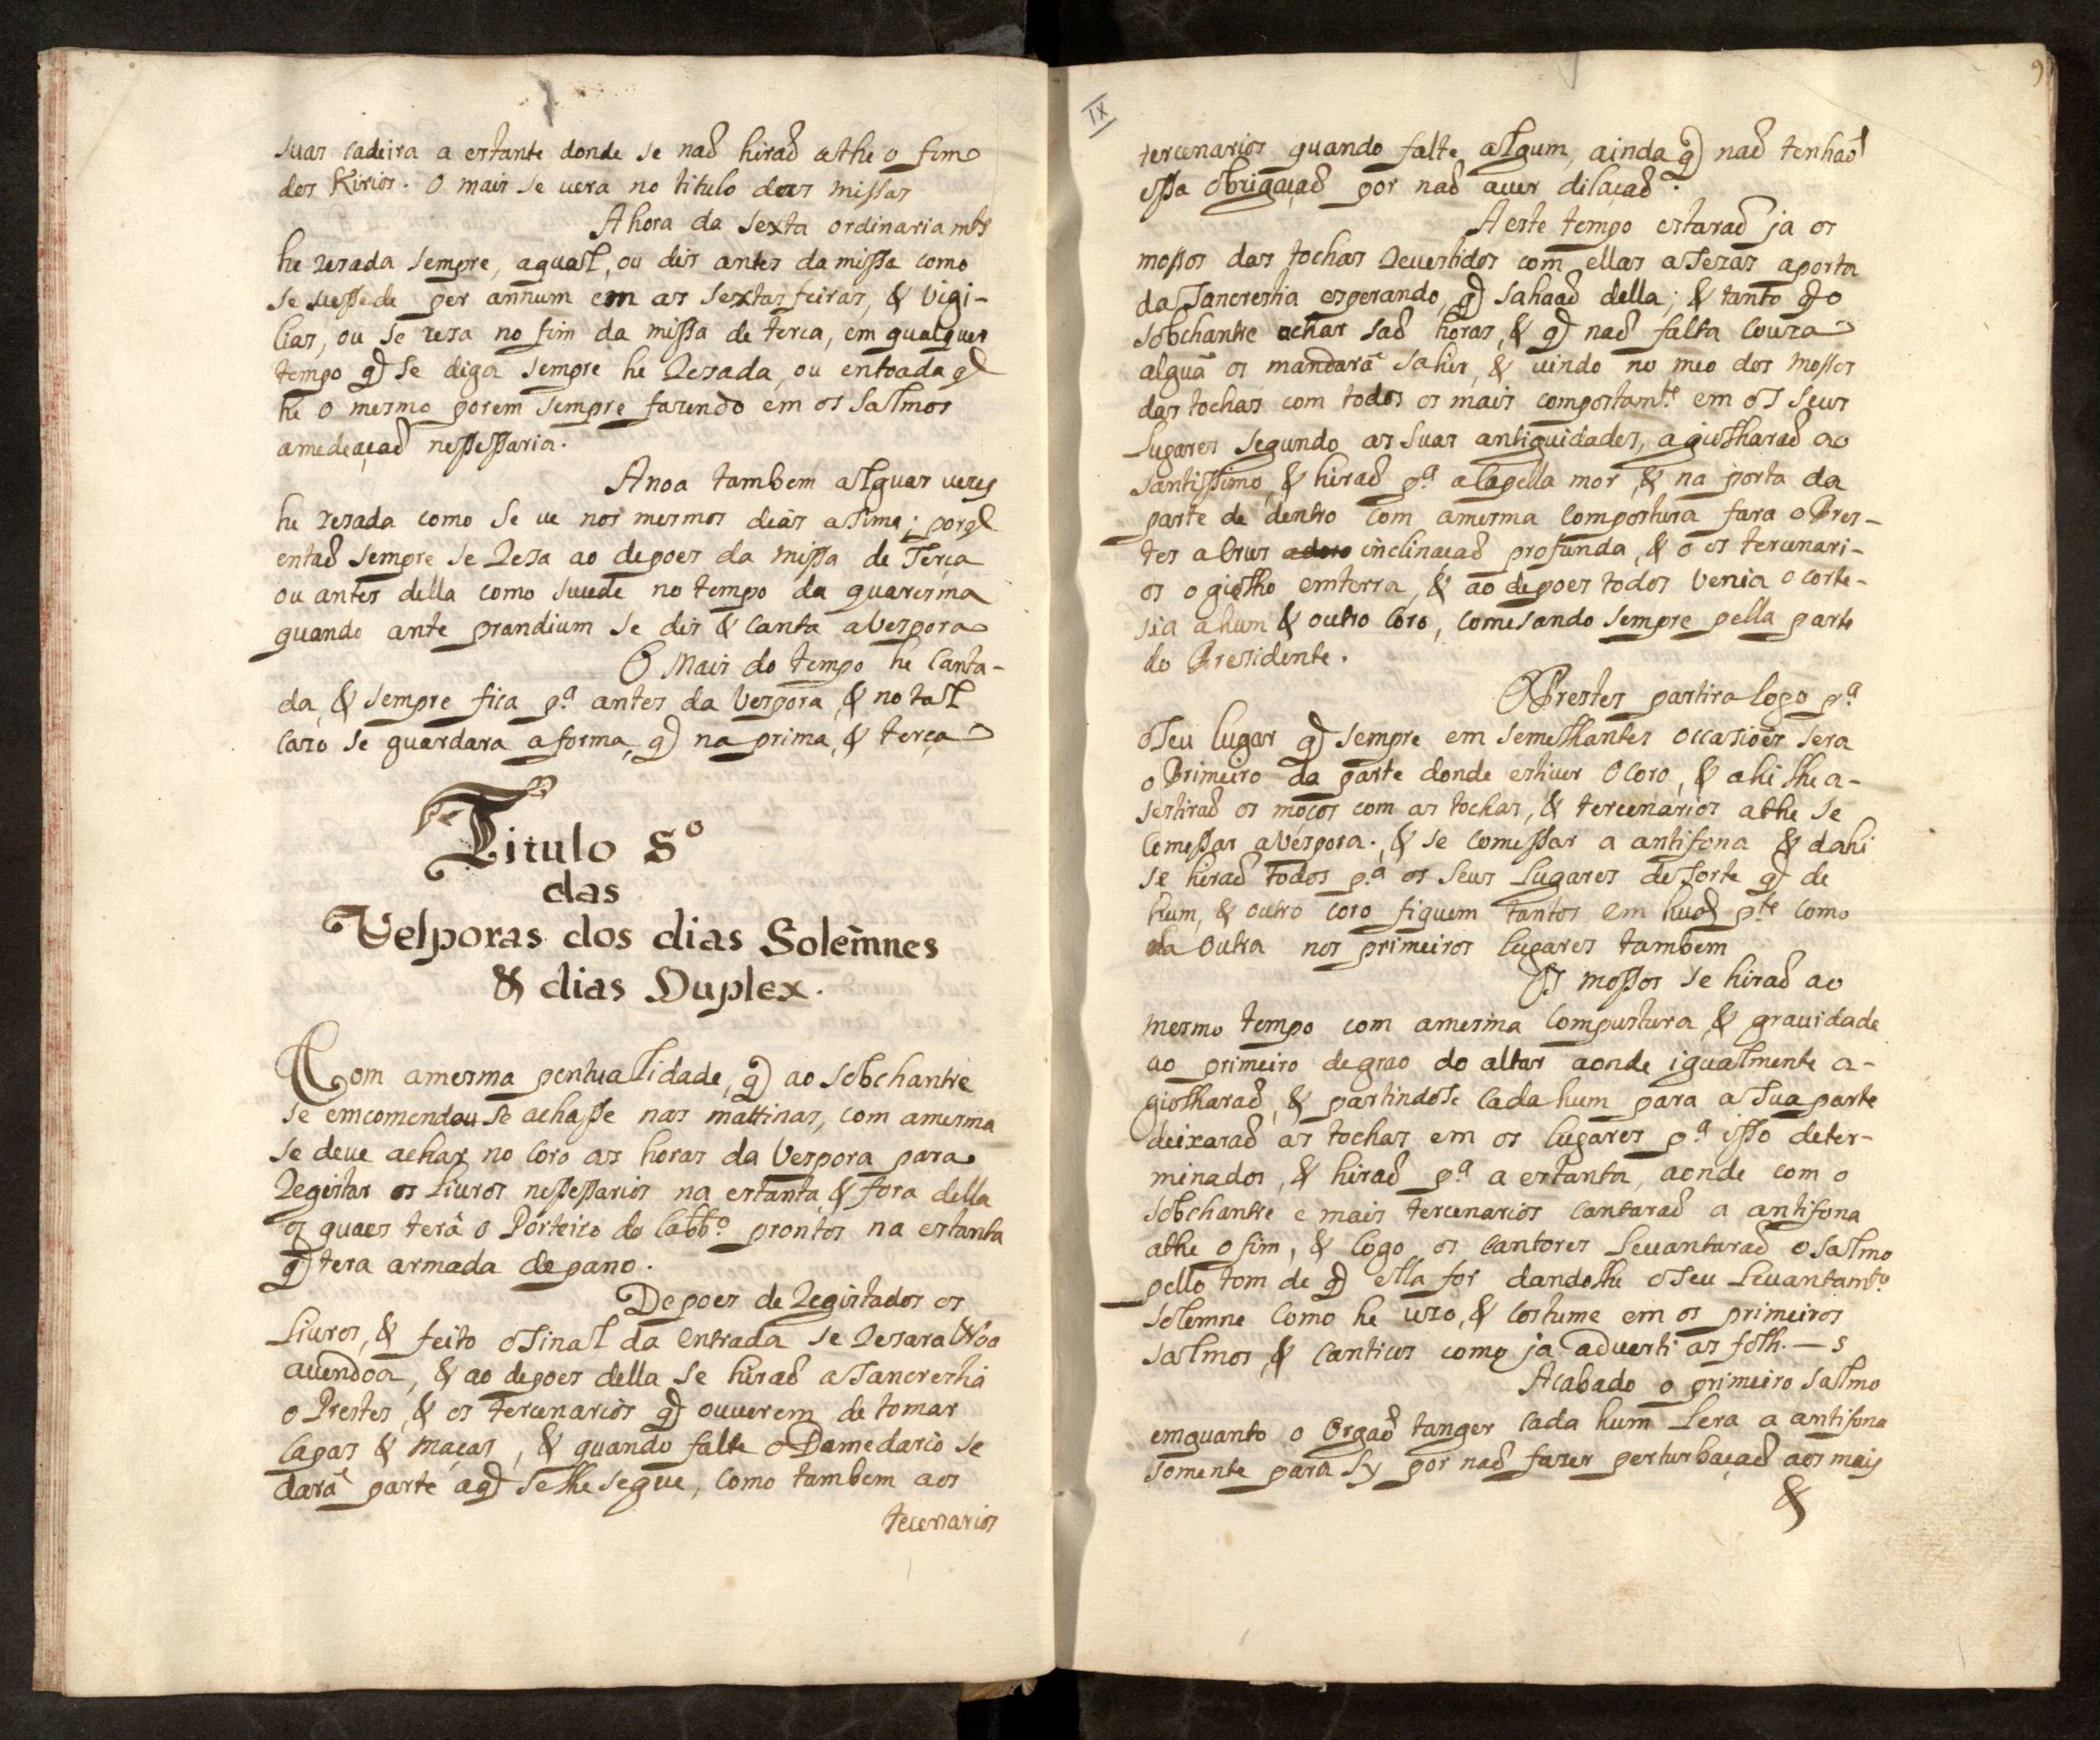 suas cadeira a estante donde se naõ hiraõ athe o fim
dos Kirios. O mais se vera no titulo das missas
A hora da sexta ordinariamte
he rezada sempre, aqual, ou dis antes da missa como
se susede per annum em as sextas feiras, & vigi-
lias, ou se reza no fim da missa de terca, em qualquer
tempo q̃ se diga sempre he Rezada, ou entoada q̃
he o mesmo porem sempre fazendo em os salmos
amedeaçaõ nessessaria.
A noa tambem alguas vezes
he rezada como se ve nos mesmos dias assima; porq̃
entaõ sempre se Reza ao depoes da missa de Terça
ou antes della como sucede no tempo da quaresma
quando ante prandium se dis & canta a Vespora
O Mais do tempo he Canta-
da, & sempre fica pª antes da Vespora, & no tal
cazo se guardara a forma, q̃ na prima, & terça
Titulo Sº
das
Vesporas dos dias Solemnes
& dias Duplex.
Com amesma pontualidade, q̃ ao sobchantre
se emcomendou se achasse nas mattinas, com amesma
se deve achar no Coro as horas da Vespora para
Registar os Livros nessessarios na estanta, & fora della
os quaes terâ o Porteiro do Cabbº prontos na estanta
q̃ tera armada de pano.
Depoes de Registados os
Livros, & feito o sinal da entrada se Rezara Noa
avendoa, & ao depoes della se hiraõ a sancrestia
o Prestes, & os tercenarios q̃ ouverem de tomar
Capas & maças, & quando falte o Domedario se
darâ parte aq̃ se lhe segue, como tambem aos
tecernarios
IX
9
tercenarios quando falte algum, ainda q̃ naõ tenhaõ
essa obrigaçaõ por naõ aver dilaçaõ.
A este tempo estaraõ ja os
mossos das tochas Revestidos com ellas a sezas aporta
da sancrestia esperando, q̃ sahaõ della; & tanto q̃ o
sobchantre achar saõ horas, & q̃ naõ falta couza
alguã os mandarâ sahir, & vindo no meo dos mossos
das tochas com todos os mais compostamte em os seus
Lugares segundo as suas antiguidades, agiolharaõ ao
santissimo, & hiraõ pª a Capella mor, & na porta da
parte de dentro com amesma compostura fara o Pres-
tes a Crus adoro inclinaçaõ profunda, & o os tercenari-
os o giolho emterra, & ao depoes todos Venia o corte-
sia ahum & outro Coro, comesando sempre pella parte
do Pressidente.
O Prestes partira logo pª
o seu lugar q̃ sempre em semelhantes occasiões sera
o Primeiro da parte donde estiver o Coro, & ahi lhe a-
sestiraõ os moços com as tochas, & tercenarios athe se
Comessar a Vespora. & se comessar a antifona & dahi
se hiraõ todos pª os seus Lugares desorte q̃ de
hum, & outro coro fiquem tantos em huã pte como
da outra nos primeiros lugares tambem
Os mossos se hiraõ ao
mesmo tempo com amesma compustura & gravidade
ao primeiro degrao do altar aonde igualmente a-
giolharaõ, & partindose cada hum para a sua parte
deixaraõ as tochas em os lugares pª isso deter-
minados, & hiraõ pª a estanta, aonde com o
sobchantre e mais tercenarios cantaraõ a antifona
athe o fim, & logo os Cantores Levantaraõ o salmo
pello tom de q̃ ella for dandolhe o seu Levantamto
solemne como he uzo, & costume em os primeiros
salmos & canticos como ja adverti as folh. — 5
Acabado o primeiro salmo
emquanto o Orgaõ tanger cada hum Lera a antifona
somente para sy por naõ fazer perturbaçaõ aos mais
&